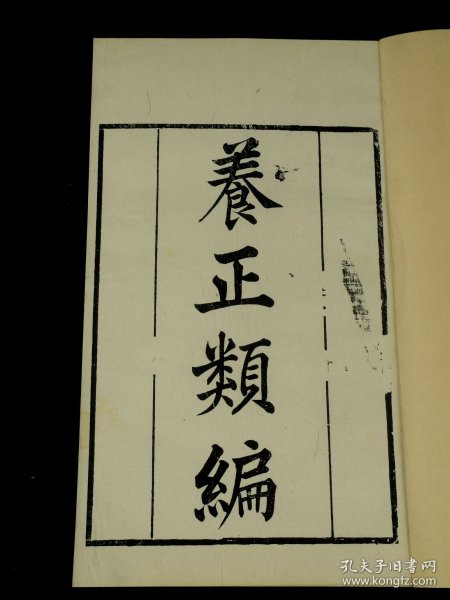 養正類編
孔夫子旧书网
www.kongfz.com